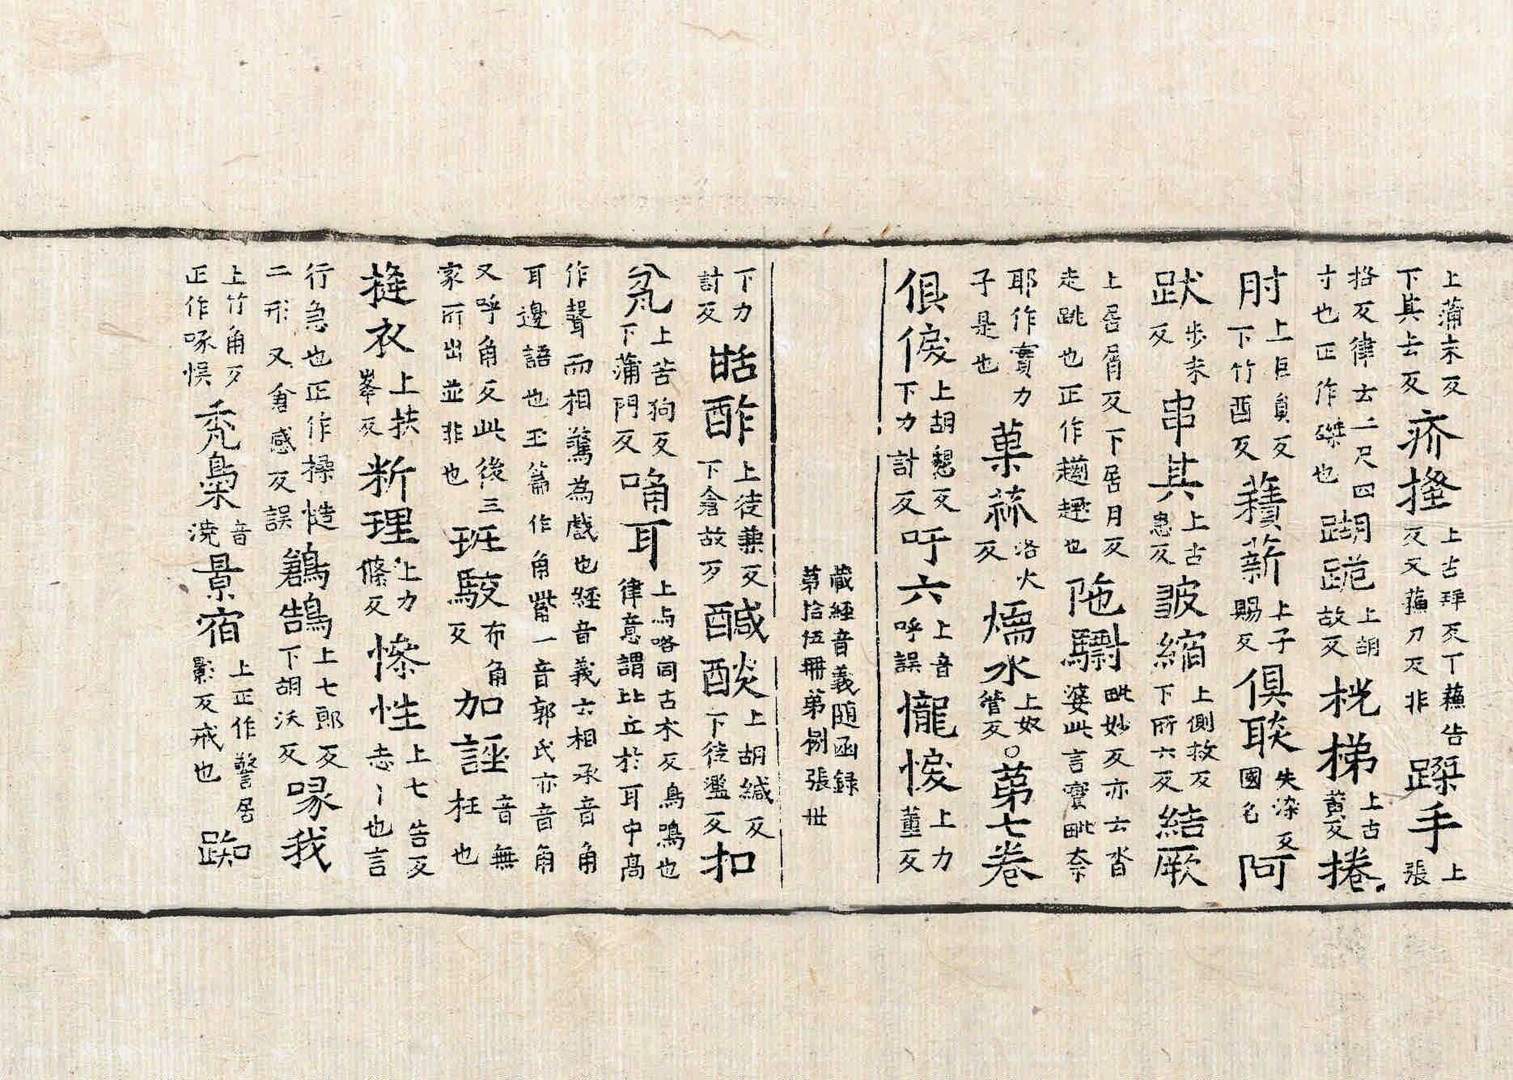 上蒲末反下其去反疥搔上古拜反丁蘓告反又蘓刀反非蹂手上張
挌反律云二尺四寸也正作磔也跍跪上胡故反桄梯上古黄反捲
肘上巨負反下竹酉反薪上子賜反俱睒失染反國名阿
跋步末反串其上古患反皺縮上側救反下所六反結厥
上居屑反下居月反走跳也正作趐趣也陁驎毗妙反亦云沓婆此言寶毗奈
耶作實力子是也菓蓏洛火反燸水上奴管反○第七卷
俱懓上胡懇反下力計反吁六上音呼誤憹悷上力董反
藏經音義随函録第拾伍冊第捌張丗
下力計反甜酢上徒兼反下倉故反醎醶上胡緘反下徒濫反扣
瓮上苦狗反下蒲門反嗃耳上与唂同古木反鳥鳴也律意謂比丘於耳中高
作聲而相驚為戲也經音義六相承音角耳邊語也玉篇作角觜一音郭氏亦音角
又呼角反此後三家所出並非也班駮布角反加誣音無枉也
摓衣上扶峯反斷理上力條反慘性上七告反志〻也言
行急也正作操慥二形又倉感反誤鶬鵠上七郎反下胡沃反喙我
上竹角反正作啄悮禿梟音澆景宿上正作警居影反戒也踟